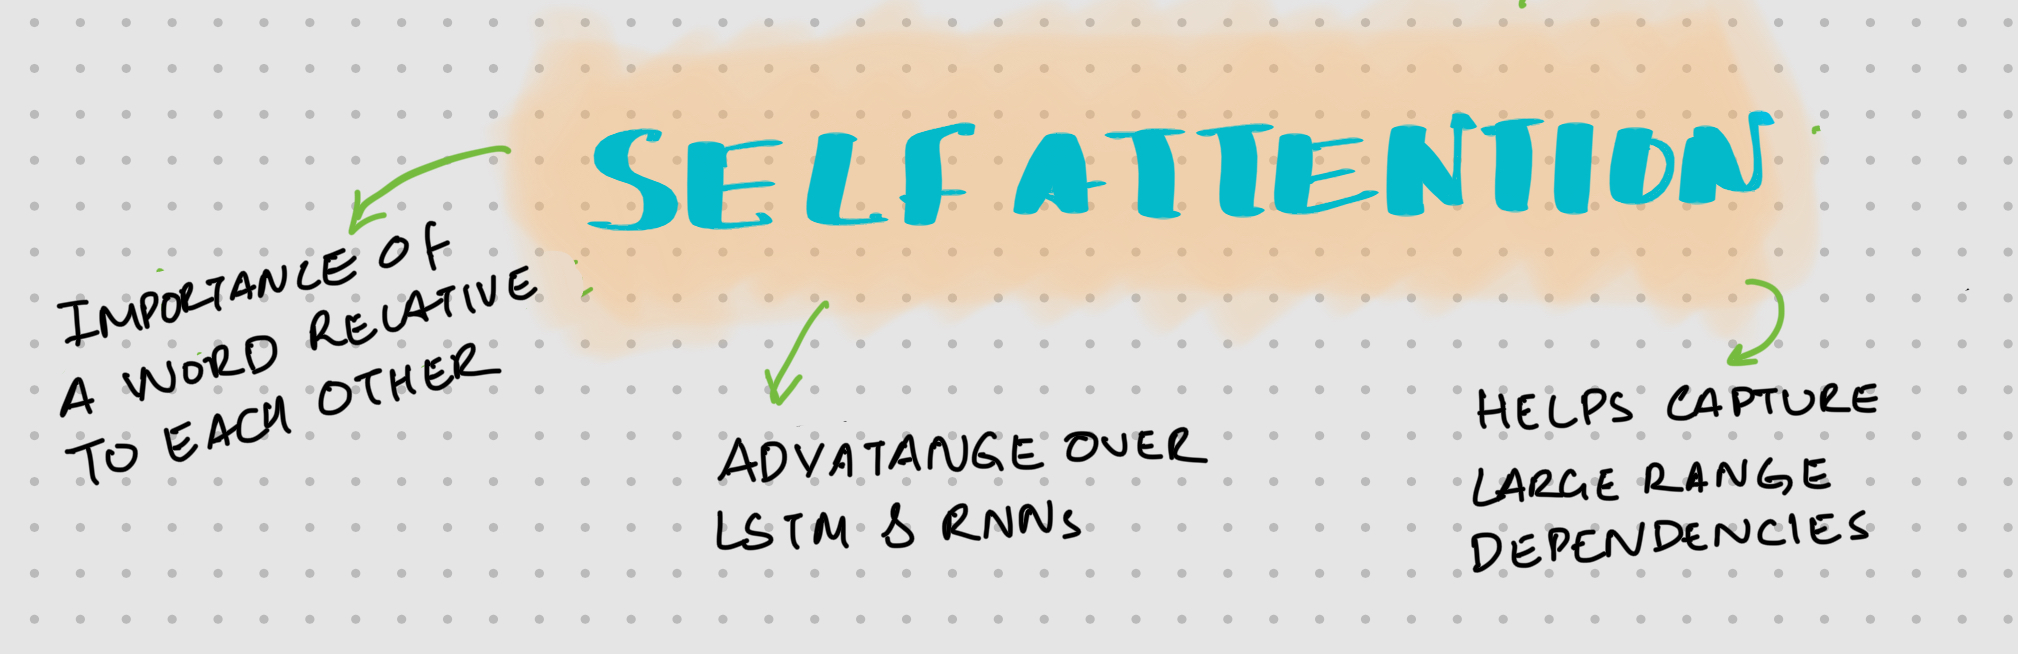 SELF ATTENTION
IMPORTANCE OF
A WORD RELATIVE
TO EACH OTHER
ADVATANGE OVER
LSTM & RNNs
HELPS CAPTURE
LARGE RANGE
DEPENDENCIES